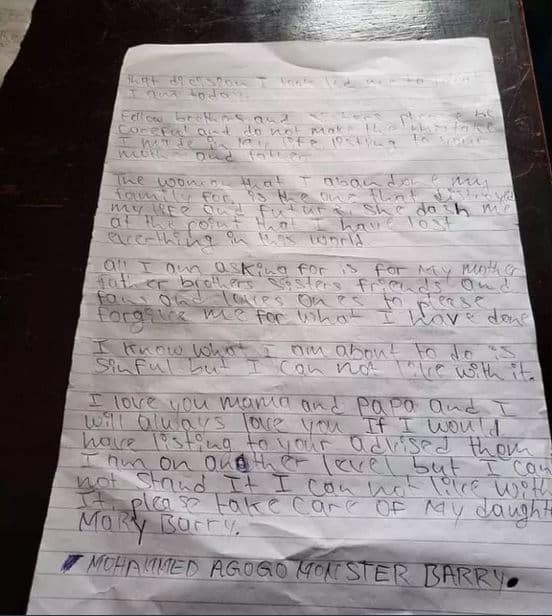 that decision I took led me to what
I am today.
Fellow brothers and sisters please be
careful and do not make the mistake
I made in my life listing to your
mother and father
The woman that I abandone my
family for, is the one that distroyed
my life and future she dash me
at the point that I have lost
everthing in this world
all I am asking for is for my mother
father brothers sisters friends and
fans and loves ones to please
forgive me for what I have done
I know what I am about to do is
sinful but I can not live with it.
I love you mama and papa and I
will always love you If I would
have listing to your advised them
I am on another level but I can
not stand It I can not live with
It, please take care of my daught
MARY Barry.
MOHAMMED AGOGO MONSTER BARRY.